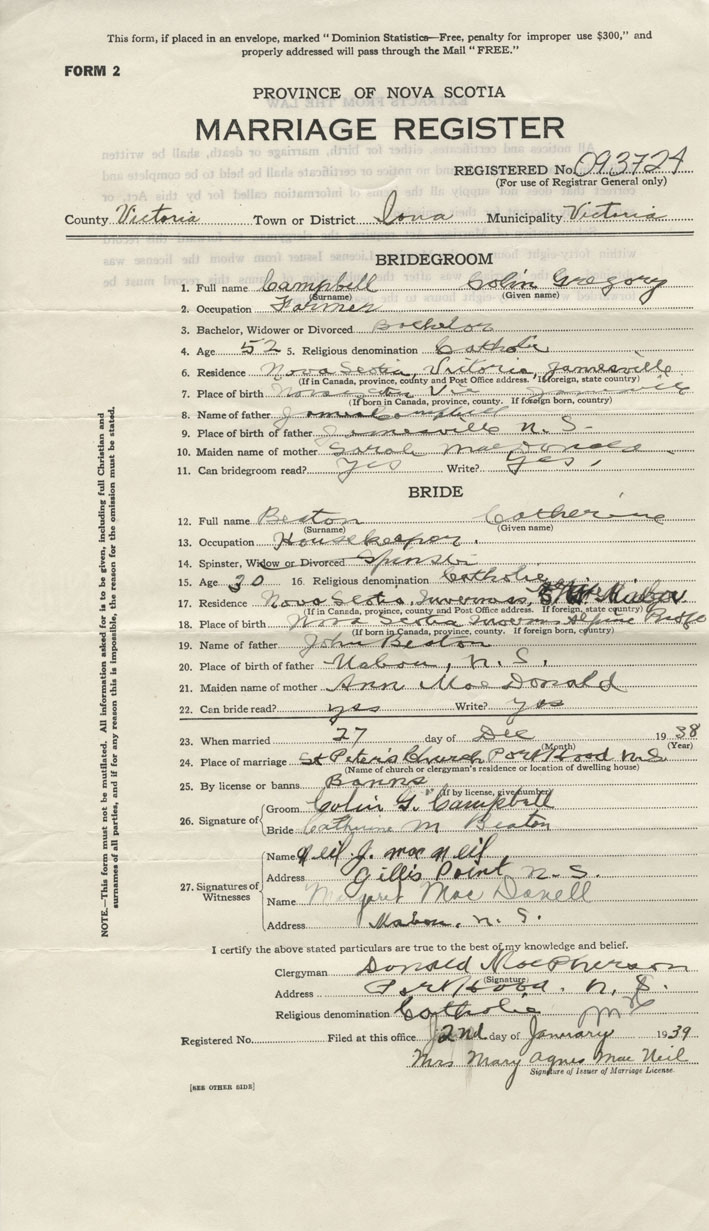 This form, if placed in an envelope, marked "Dominion Statistics—Free, penalty for improper use $300," and
properly addressed will pass through the Mail "FREE."
FORM 2
PROVINCE OF NOVA SCOTIA
MARRIAGE REGISTER
REGISTERED No. 093724
(For use of Registrar General only)
County Victoria Town or District Iona Municipality Victoria
BRIDEGROOM
1. Full name Campbell Colin Gregory
(Surname) (Given name)
2. Occupation Farmer
3. Bachelor, Widower or Divorced Bachelor
4. Age 52 5. Religious denomination Catholic
6. Residence Nova Scotia, Victoria, Jamesville
(If in Canada, province, county and Post Office address. If foreign, state country)
7. Place of birth Nova Scotia Vic
(If born in Canada, province, county. If foreign born, country)
8. Name of father James Campbell
9. Place of birth of father Jamesville N.S.
10. Maiden name of mother Sarah MacDonald
11. Can bridegroom read? Yes Write? Yes,
BRIDE
12. Full name Beaton Catherine
(Surname) (Given name)
13. Occupation Housekeeper.
14. Spinster, Widow or Divorced Spinster
15. Age 30 16. Religious denomination Catholic
17. Residence Nova Scotia, Inverness, Mabou
(If in Canada, province, county and Post Office address. If foreign, state country)
18. Place of birth Nova Scotia Invern Alpine Ridge
(If born in Canada, province, county. If foreign born, country)
19. Name of father John Beaton
20. Place of birth of father Mabou, N.S.
21. Maiden name of mother Ann MacDonald
22. Can bride read? yes Write? yes
23. When married 27 day of Dec 1938
(Month) (Year)
24. Place of marriage St Peter's Church Port Hood N.S.
(Name of church or clergyman's residence or location of dwelling house)
25. By license or banns Banns
(If by license, give number)
26. Signature of
Groom Colin G. Campbell
Bride Catherine M Beaton
27. Signatures of Witnesses
Name Neil J. mac Neil
Address Gillis Point N.S.
Name Margaret MacDonell
Address Mabou, N.S.
I certify the above stated particulars are true to the best of my knowledge and belief.
Clergyman Donald MacPherson
(Signature)
Address Port Hood. N.S.
Religious denomination Catholic
Registered No. Filed at this office 2nd day of January 1939
Mrs Mary Agnes MacNeil
Signature of Issuer of Marriage License.
[SEE OTHER SIDE]
NOTE.—This form must not be mutilated. All information asked for is to be given, including full Christian and
surnames of all parties, and if for any reason this is impossible, the reason for the omission must be stated.